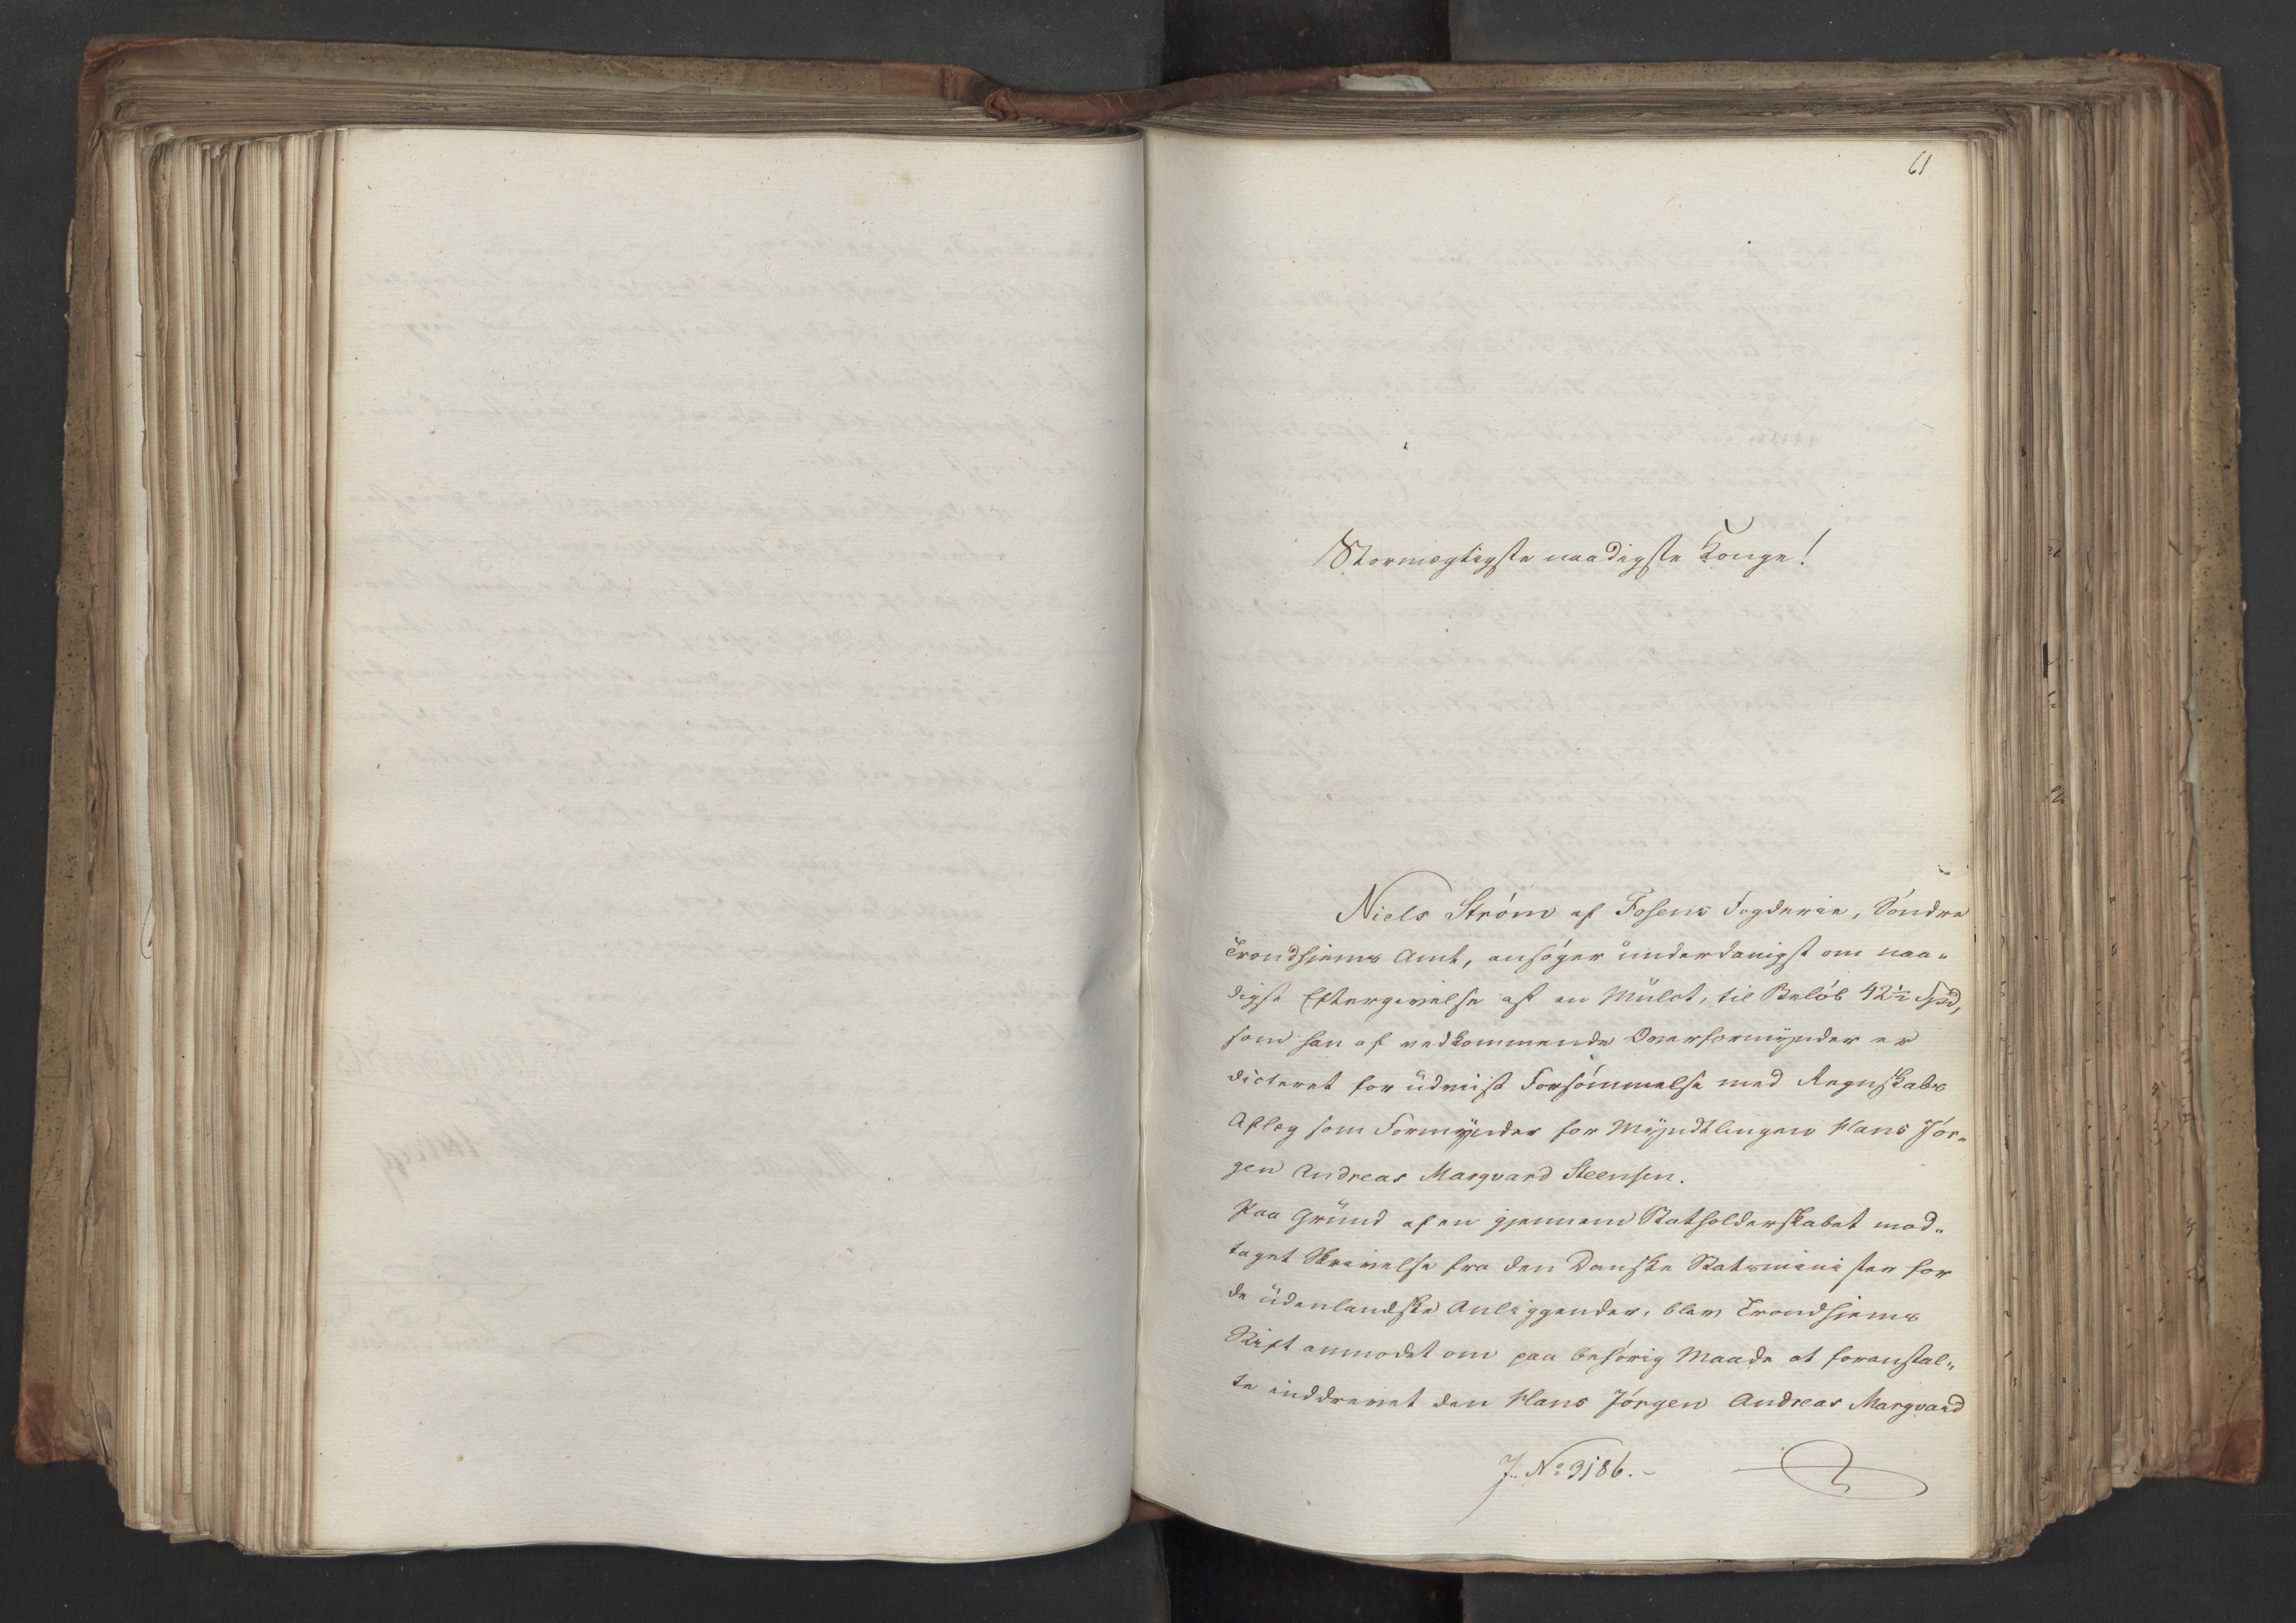 61
Stormægtigste naadigste Konge!
Niels Ström af Fosens Fogderie, Söndre
Trondhjems Amt, ansöger underdanigst om naa-
digst Eftergivelse af en Mulct, til Belöb 42½ Spd,
som han af vedkommende Overformynder er
dicteret for udviist Forsömmelse med Regnskabs
Aflæg som Formynder for Myndtlingen Hans Jör-
gen Andreas Marqvard Steensen.
Paa Grund af en gjennem Statholderskabet mod-
taget Skrivelse fra den Danske Statsminister for
de udenlandske Anliggender, blev Trondhjems
Stift anmodet om paa behörig Maade at foranstal-
te inddrevet den Hans Jörgen Andreas Marqvard
J. No 3186.